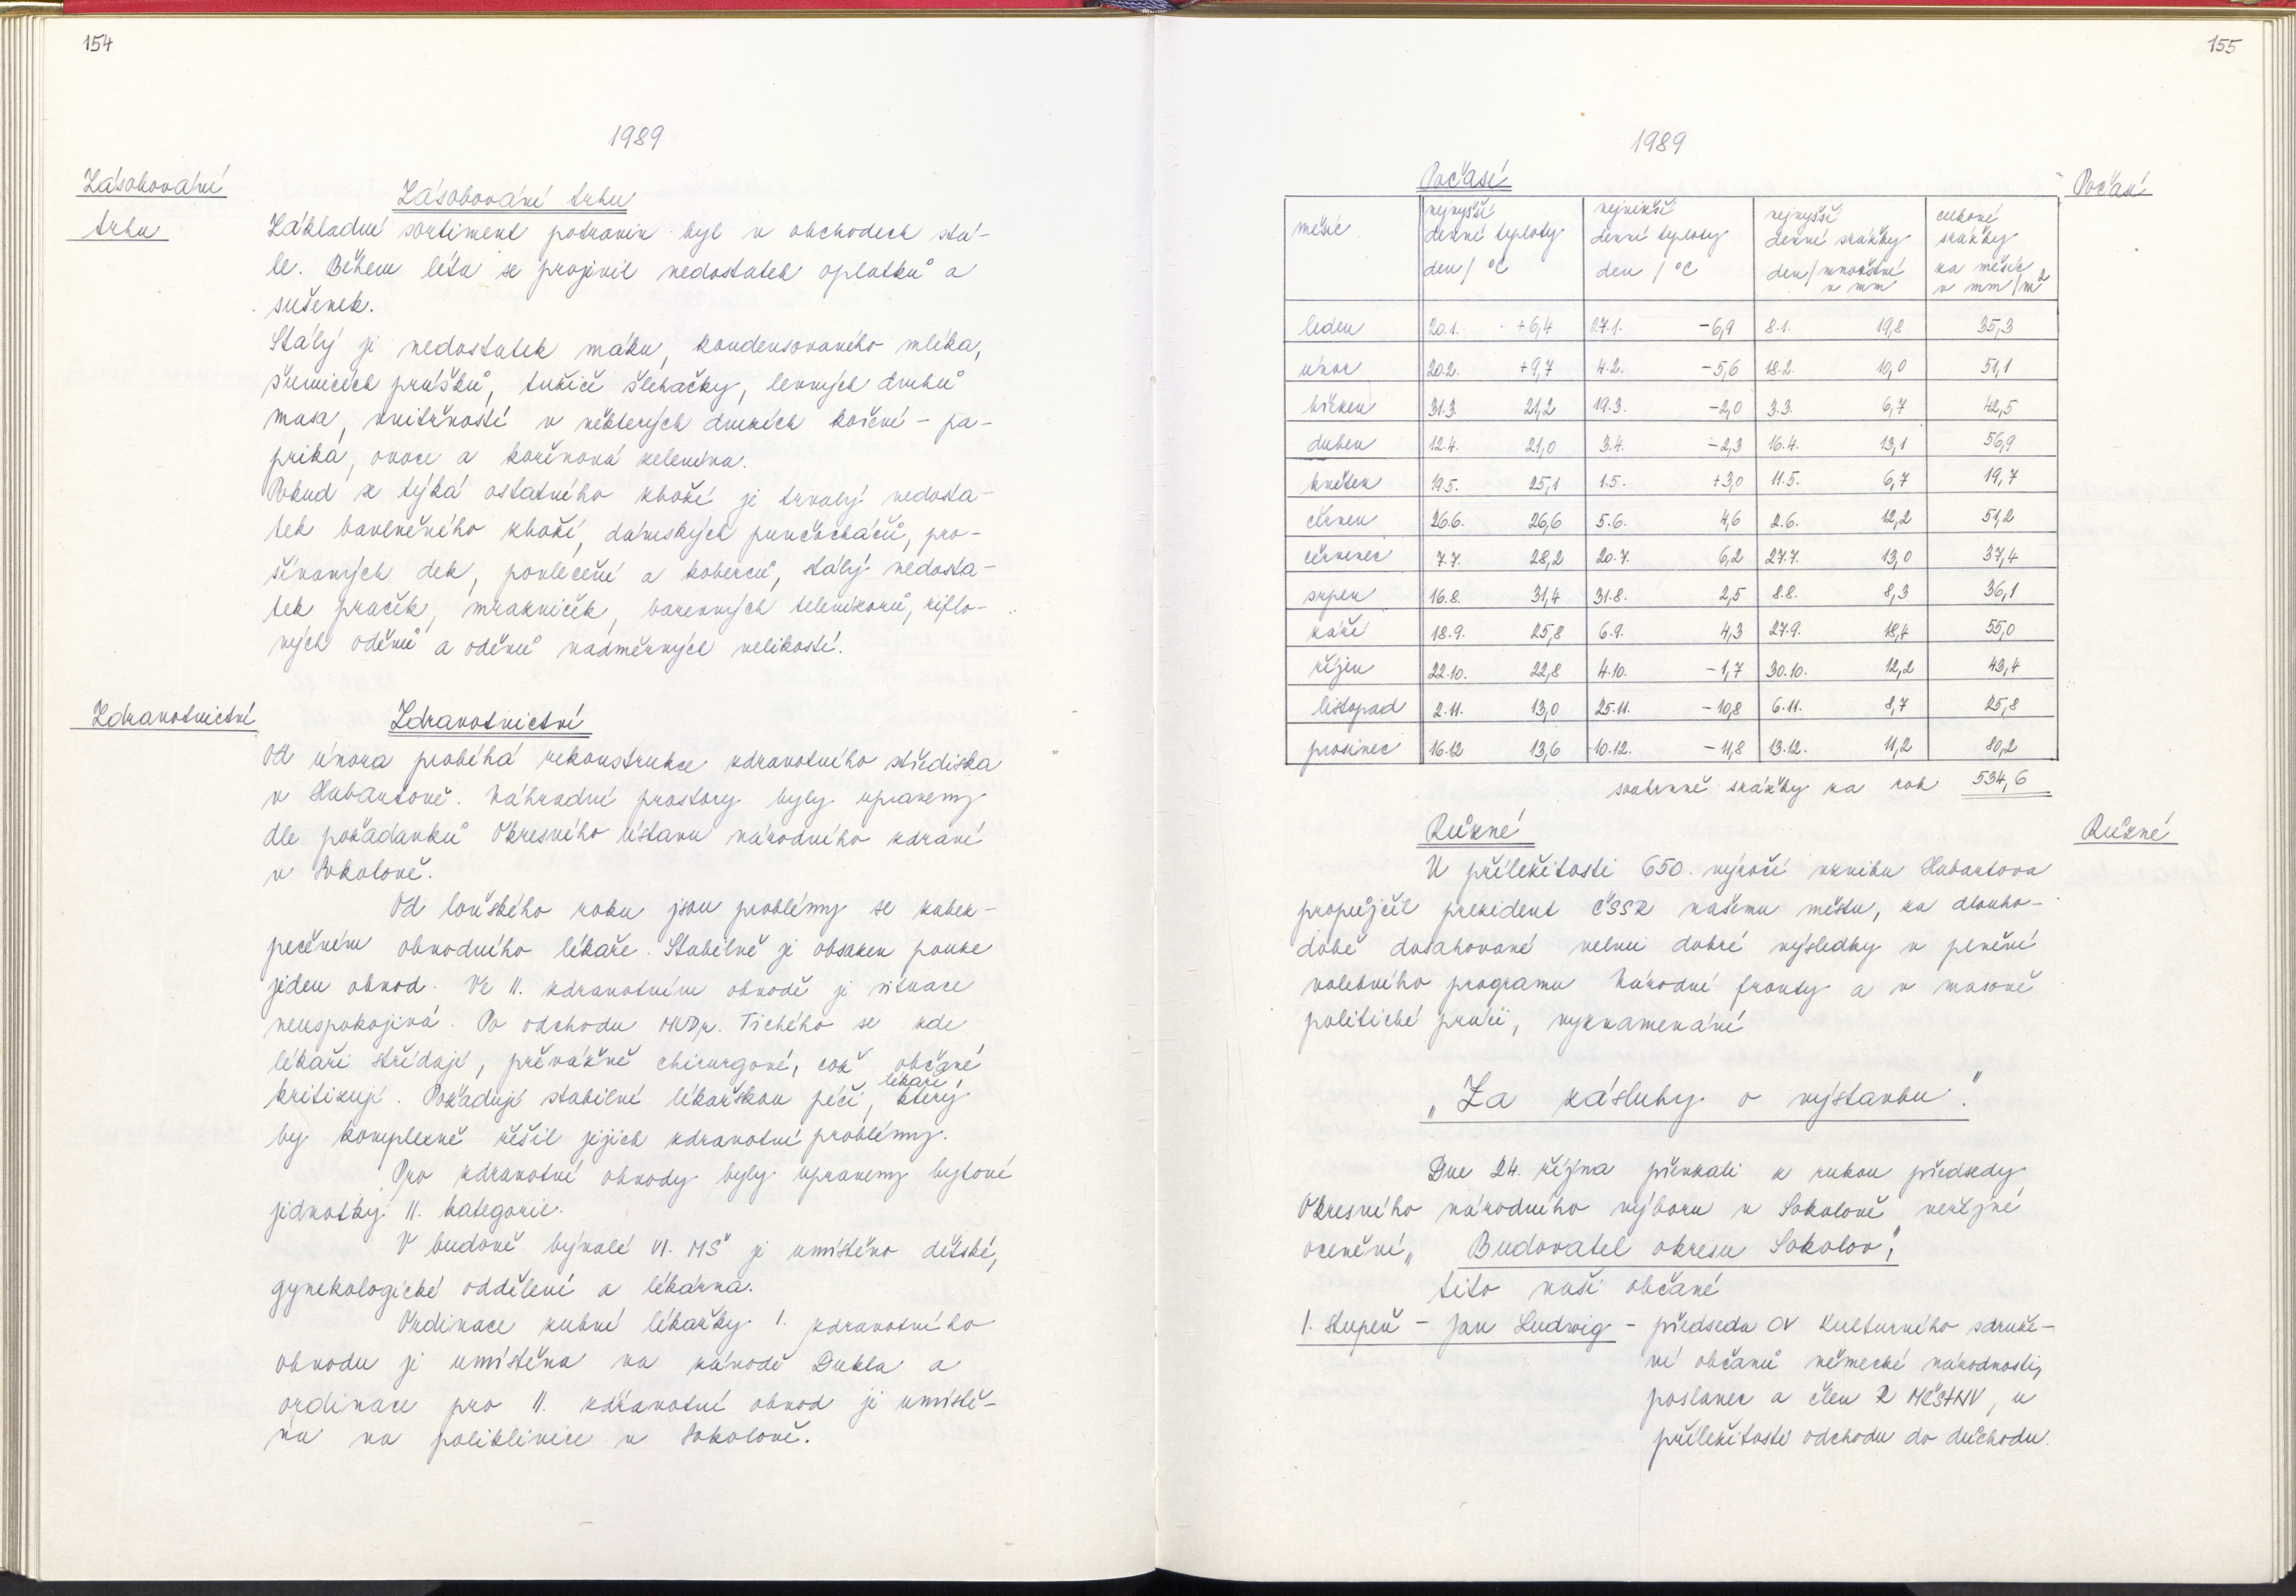 154
1989
Zásobování
trhu
Zásobování trhu
Základní sortiment potravin byl v obchodech stá-
le. Během léta se projevil nedostatek oplatků a
sušenek.
Stálý je nedostatek máku, kondensovaného mléka,
šumících prášků, tužiče šlehačky, levných druhů
masa, vnitřností v některých druzích koření - pa-
prika, ovoce a kořenová zelenina.
Pokud se týká ostatního zboží je trvalý nedosta-
tek bavlněného zboží, dámských punčocháčů, pro-
šívaných dek, povlečení a koberců, stálý nedosta-
tek praček, mrazniček, barevných televizorů, riflo-
vých oděvů a oděvů nadměrných velikostí.
Zdravotnictví
Zdravotnictví
Od února probíhá rekonstrukce zdravotního střediska
v Habartově. Náhradní prostory byly upraveny
dle požadavků Okresního ústavu národního zdraví
v Sokolově.
Od loňského roku jsou problémy se zabez-
pečením obvodního lékaře. Stabilně je obsazen pouze
jeden obvod. Ve II. zdravotním obvodě je situace
neuspokojivá. Po odchodu MUDr. Tichého se zde
lékaři střídají, převážně chirurgové, což občané
kritizují. Požadují stabilní lékařskou péči, lékaře, který
by komplexně řešil jejich zdravotní problémy.
Pro zdravotní obvody byly upraveny bytové
jednotky II. kategorie.
V budově bývalé VI. MŠ je umístěno dětské,
gynekologické oddělení a lékárna.
Ordinace zubní lékařky I. zdravotního
obvodu je umístěna na závodě Dukla a
ordinace pro II. zdravotní obvod je umístě-
na na poliklinice v Sokolově.
155
1989
Počasí
Počasí
měsíc nejvyšší denní teploty den / °C nejnižší denní teploty den / °C nejvyšší denní srážky den / množství v mm celkové srážky za měsíc v mm/m²
leden 20.1. +6,4 27.1. -6,9 8.1. 19,8 35,3
únor 20.2. +9,7 4.2. -5,6 18.2. 10,0 51,1
březen 31.3. 21,2 19.3. -2,0 3.3. 6,7 42,5
duben 12.4. 21,0 3.4. -2,3 16.4. 13,1 56,9
květen 19.5. 25,1 1.5. +3,0 11.5. 6,7 19,7
červen 26.6. 26,6 5.6. 4,6 2.6. 12,2 51,2
červenec 7.7. 28,2 20.7. 6,2 27.7. 13,0 37,4
srpen 16.8. 31,4 31.8. 2,5 8.8. 8,3 36,1
září 18.9. 25,8 6.9. 4,3 27.9. 18,4 55,0
říjen 22.10. 22,8 4.10. -1,7 30.10. 12,2 43,4
listopad 2.11. 13,0 25.11. -10,8 6.11. 8,7 25,8
prosinec 16.12 13,6 10.12. -11,8 13.12. 11,2 80,2
souhrnné srážky za rok 534,6
Různé
Různé
U příležitosti 650. výročí vzniku Habartova
propůjčil prezident ČSSR našemu městu, za dlouho-
době dosahované velmi dobré výsledky v plnění
volebního programu Národní fronty a v masově
politické práci, vyznamenání
„Za zásluhy o výstavbu".
Dne 24. října převzali z rukou předsedy
Okresního národního výboru v Sokolově veřejné
ocenění „Budovatel okresu Sokolov",
tito naši občané
I. stupeň - Jan Ludwig - předseda OV Kulturního sdruže-
ní občanů německé národnosti,
poslanec a člen R MěstNV, u
příležitosti odchodu do důchodu.